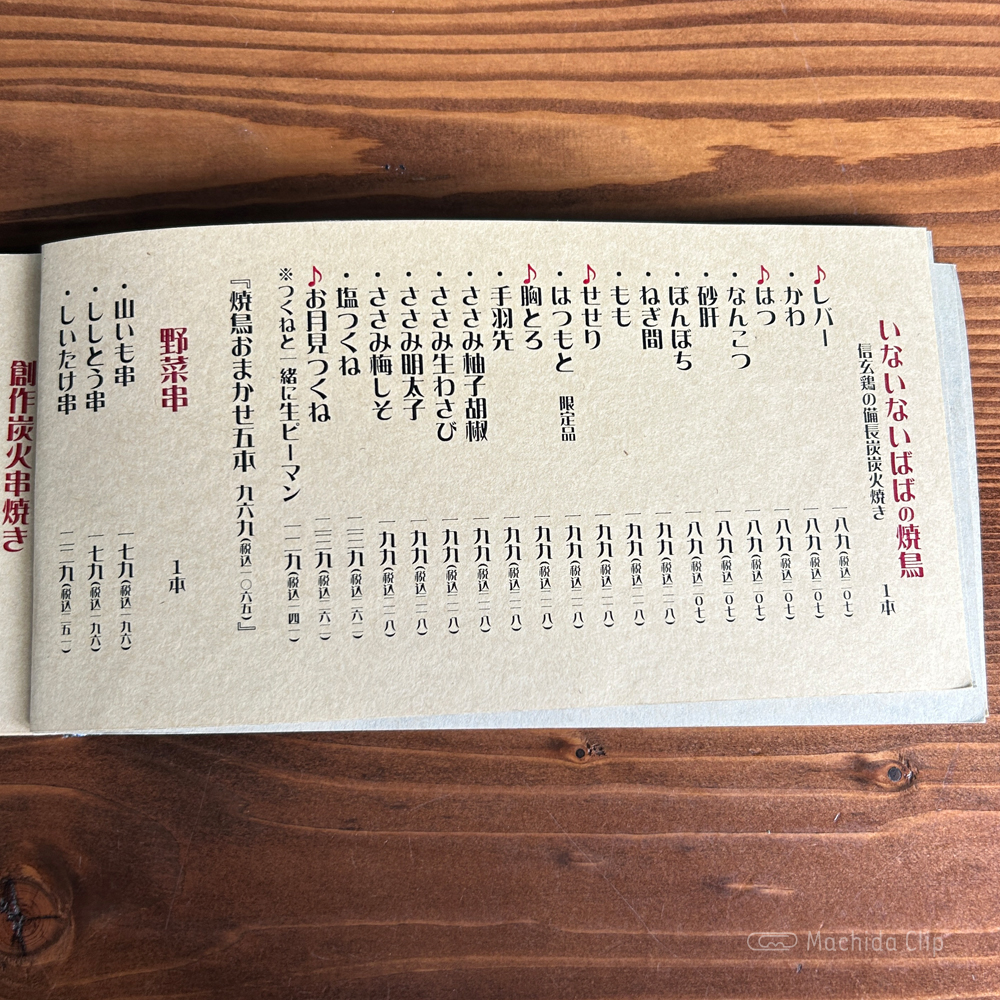 いないないばばの焼鳥 1本
信玄鶏の備長炭炭火焼き
♪レバー 一八九(税込二〇七)
・かわ 一八九(税込二〇七)
♪はつ 一八九(税込二〇七)
・なんこつ 一八九(税込二〇七)
・砂肝 一八九(税込二〇七)
・ぼんぼち 一八九(税込二〇七)
・ねぎ間 一九九(税込二一八)
・もも 一九九(税込二一八)
♪せせり 一九九(税込二一八)
・はつもと 限定品 一九九(税込二一八)
♪胸とろ 一九九(税込二一八)
・手羽先 一九九(税込二一八)
・ささみ柚子胡椒 一九九(税込二一八)
・ささみ生わさび 一九九(税込二一八)
・ささみ明太子 一九九(税込二一八)
・ささみ梅しそ 一九九(税込二一八)
・塩つくね 二三九(税込二六二)
♪お月見つくね 二三九(税込二六二)
※つくねと一緒に生ピーマン 一二九(税込一四一)
『焼鳥おまかせ五本 九六九(税込一〇六五)』
野菜串 1本
・山いも串 一七九(税込一九六)
・ししとう串 一七九(税込一九六)
・しいたけ串 二二九(税込二五一)
創作炭火串焼き
Machida Clip